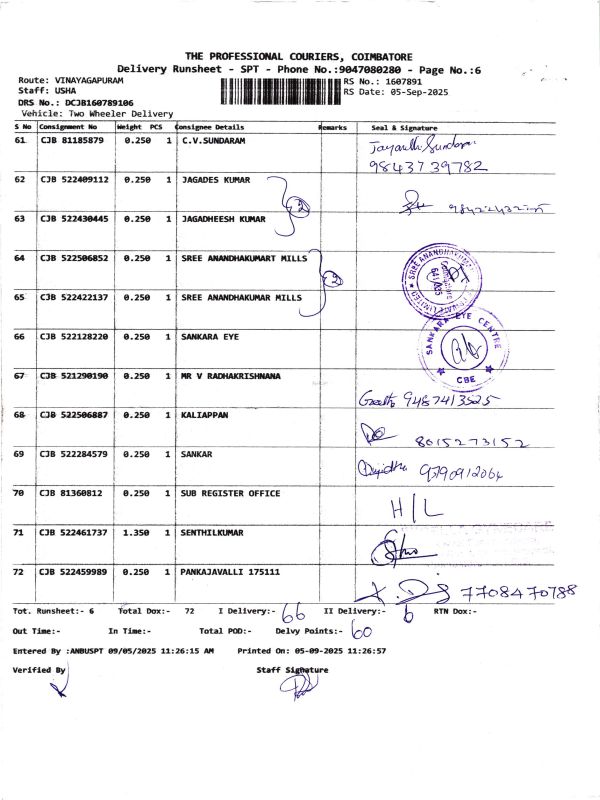 THE PROFESSIONAL COURIERS, COIMBATORE
Delivery Runsheet - SPT - Phone No.:9047080280 - Page No.:6
Route: VINAYAGAPURAM
RS No.: 1607891
Staff: USHA
RS Date: 05-Sep-2025
DRS No.: DCJB160789106
Vehicle: Two Wheeler Delivery
S No Consignment No Weight PCS Consignee Details Remarks Seal & Signature
61 CJB 81185879 0.250 1 C.V.SUNDARAM
9843739782
62 CJB 522409112 0.250 1 JAGADES KUMAR
2
63 CJB 522430445 0.250 1 JAGADHEESH KUMAR
64 CJB 522506852 0.250 1 SREE ANANDHAKUMART MILLS
2
65 CJB 522422137 0.250 1 SREE ANANDHAKUMAR MILLS
66 CJB 522128220 0.250 1 SANKARA EYE
SANKARA EYE CENTRE
CBE
67 CJB 521290190 0.250 1 MR V RADHAKRISHNANA
9487413525
68 CJB 522506887 0.250 1 KALIAPPAN
8015273152
69 CJB 522284579 0.250 1 SANKAR
9790912064
70 CJB 81360812 0.250 1 SUB REGISTER OFFICE
H/L
71 CJB 522461737 1.350 1 SENTHILKUMAR
72 CJB 522459989 0.250 1 PANKAJAVALLI 175111
7708470788
Tot. Runsheet:- 6 Total Dox:- 72 I Delivery:- 66 II Delivery:- 6 RTN Dox:-
Out Time:- In Time:- Total POD:- Delvy Points:- 60
Entered By :ANBUSPT 09/05/2025 11:26:15 AM Printed On: 05-09-2025 11:26:57
Verified By Staff Signature